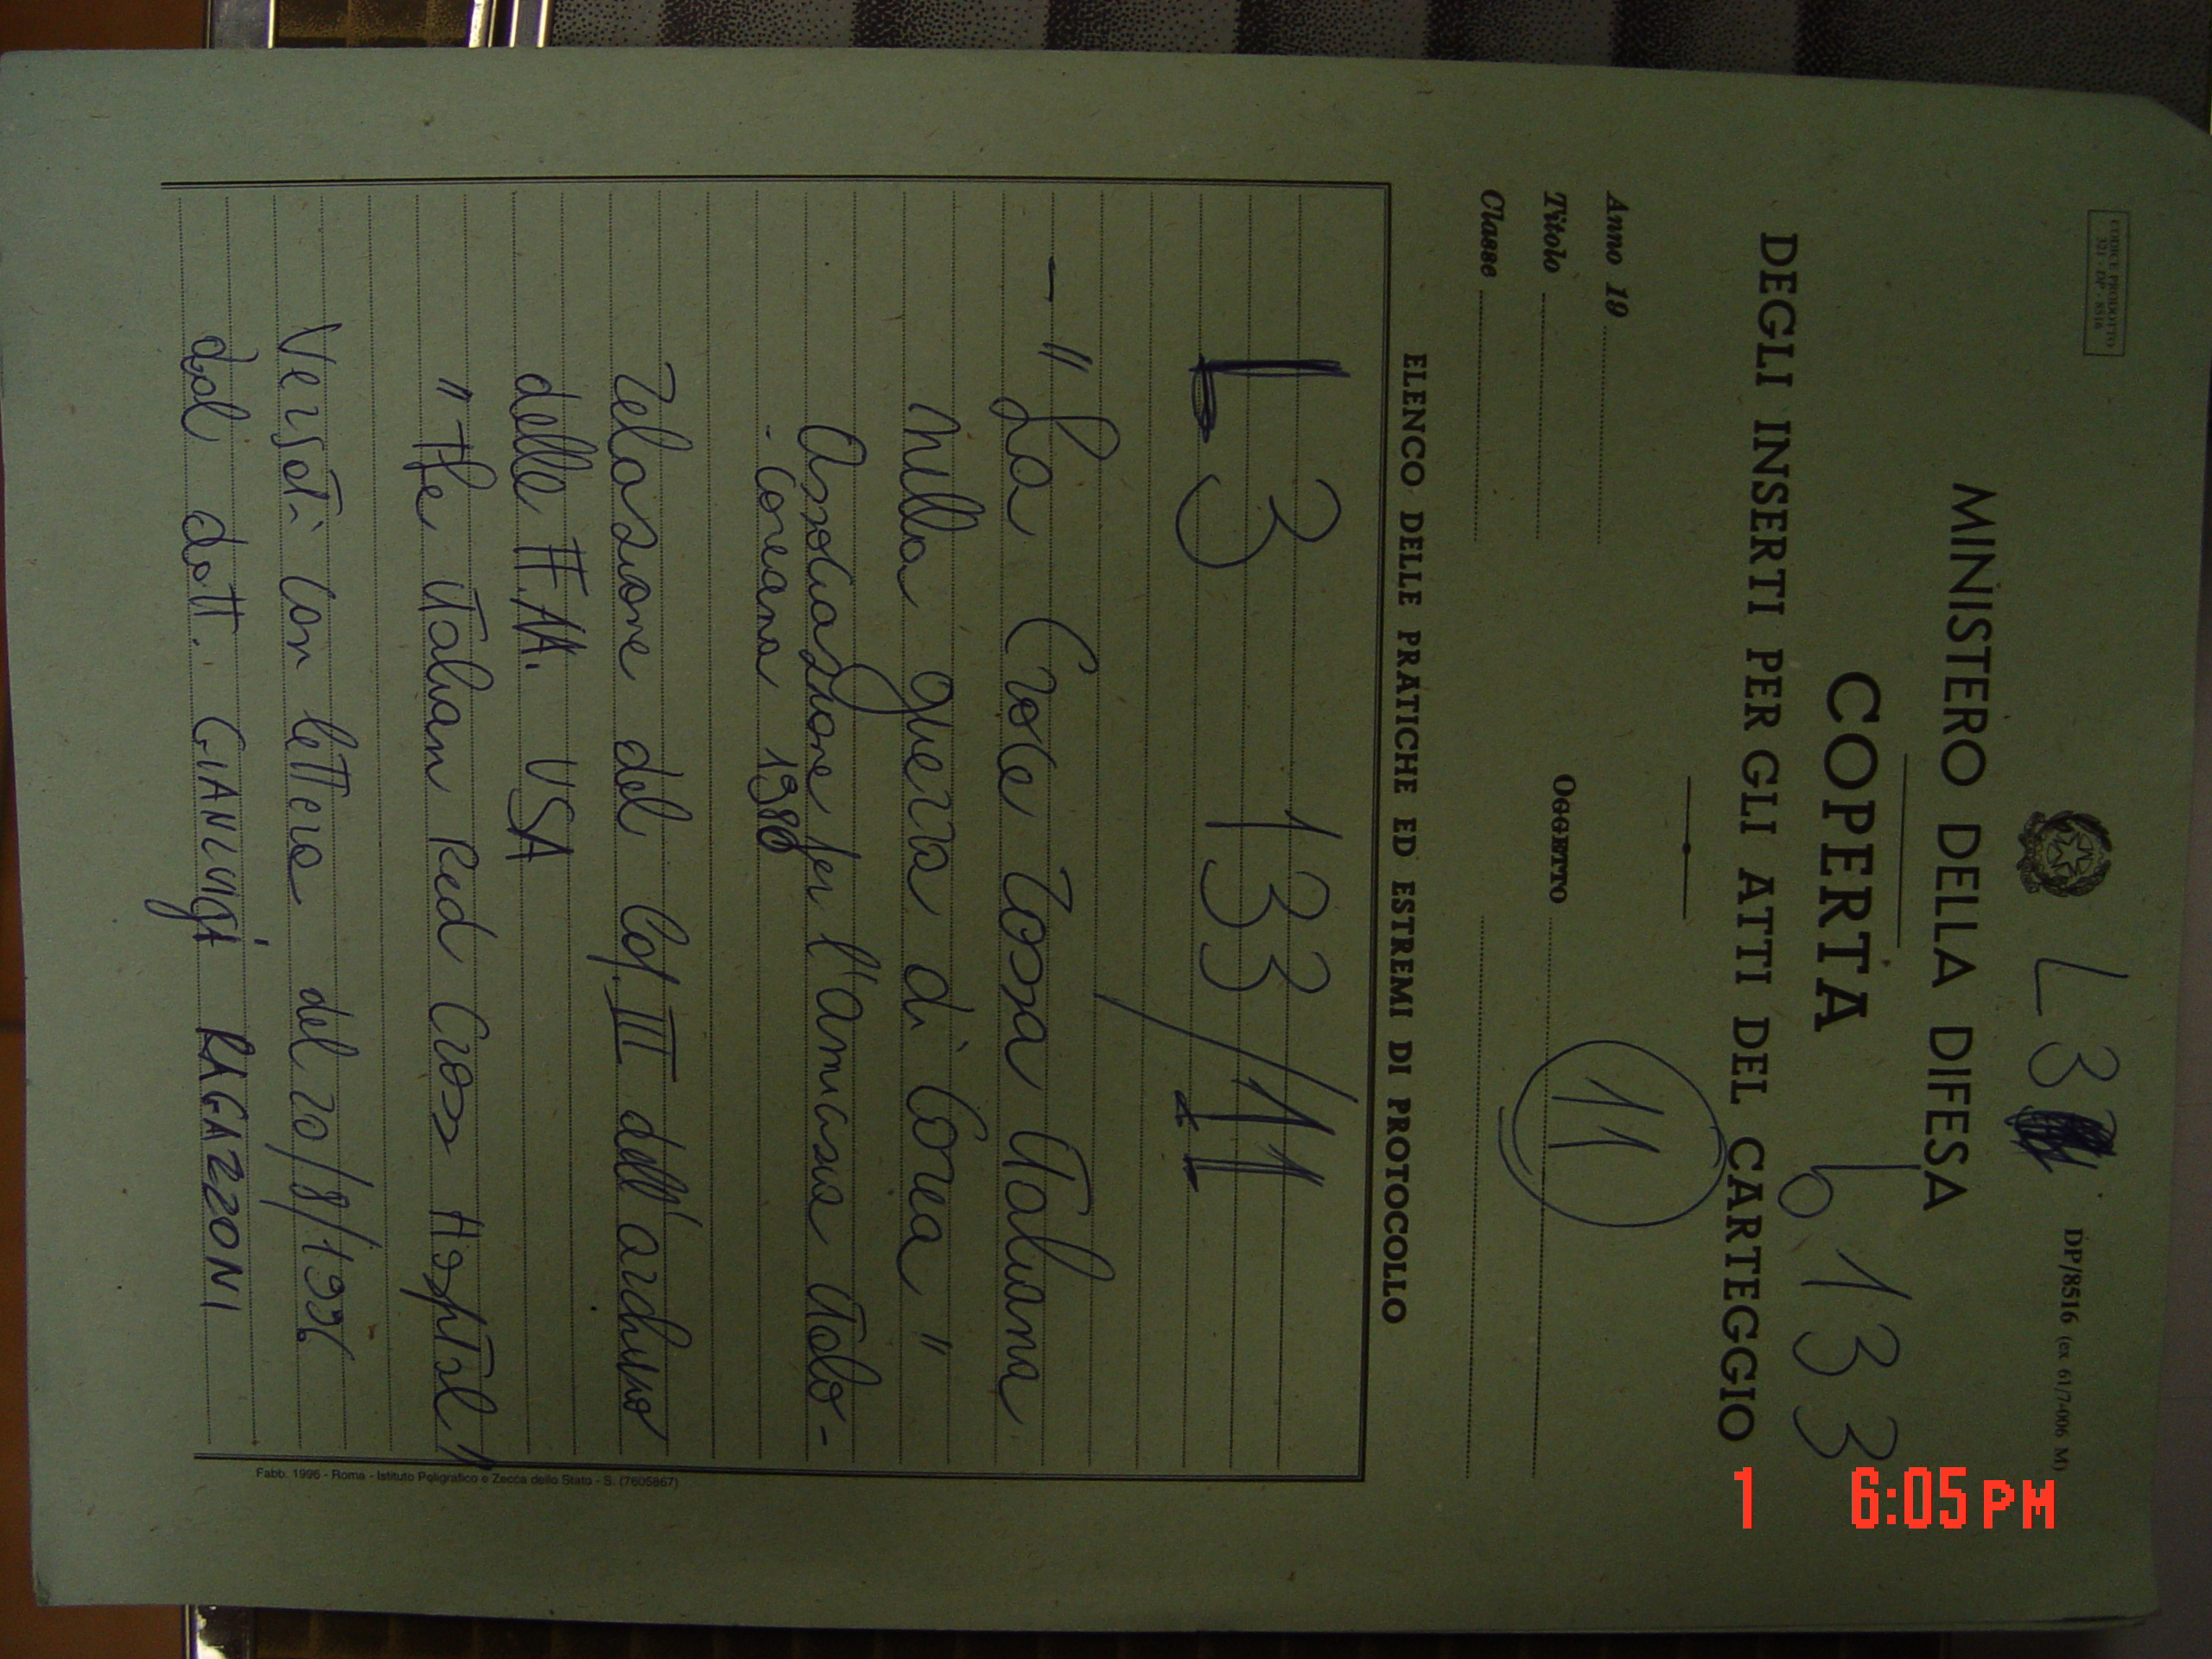 CODICE PRODOTTO
321 - DP - 8516
L3
DP/8516 (ex 61/7-006 M)
MINISTERO DELLA DIFESA
COPERTA
b. 133
DEGLI INSERTI PER GLI ATTI DEL CARTEGGIO
Anno 19
Titolo
Classe
OGGETTO
11
ELENCO DELLE PRATICHE ED ESTREMI DI PROTOCOLLO
L3 133/11
- "La Croce rossa italiana
nella guerra di Corea"
Associazione per l'amicizia italo-
- Coreana 1980
relazione del Col. III dell'archivio
delle FF.AA. USA
"The italian Red Cross Hospital"
Versati con lettera del 20/8/1996
dal dott. GIANLUIGI RAGAZZONI
Fabb. 1996 - Roma - Istituto Poligrafico e Zecca dello Stato - S. (7605867)
1 6:05 PM